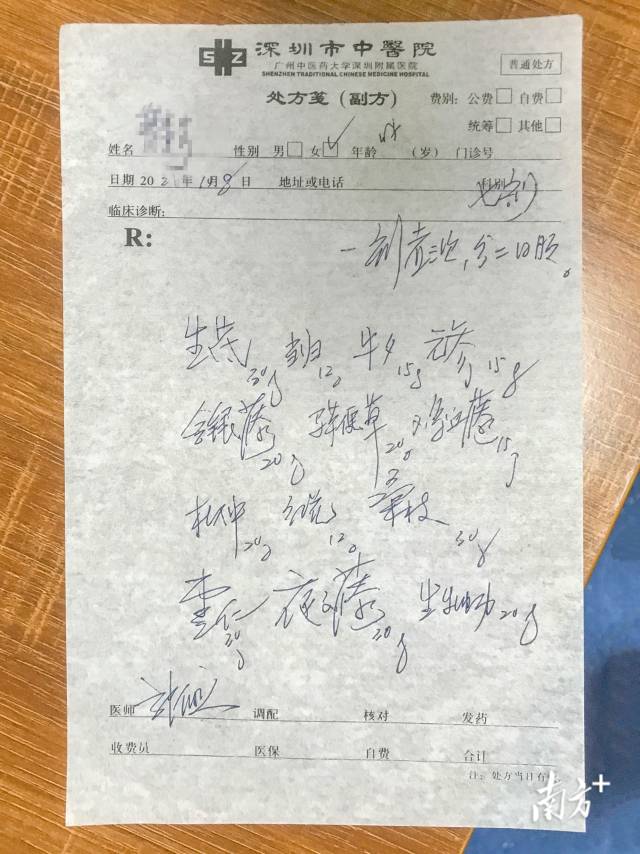 SHZ 深圳市中醫院
广州中医药大学深圳附属医院
SHENZHEN TRADITIONAL CHINESE MEDICINE HOSPITAL
普通处方
处方笺（副方） 费别：公费□ 自费□
统筹□ 其他□
姓名 性别 男□ 女□ 年龄 （岁） 门诊号
日期 202 年 1月8日 地址或电话 科别
临床诊断：
R:
一剂煮三次，分二日服。
生芪30g 当归12g 牛夕15g 元参15g
金银藤20g 20g 鸡血藤15g
杜仲20g 12g 30g
枣仁30g 夜交藤30g 生牡蛎20g
医师 调配 核对 发药
收费员 医保 自费 合计
注：处方当日有
南方+